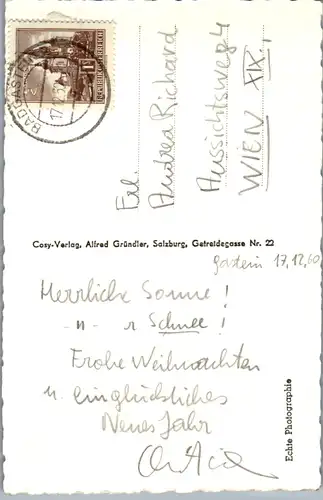 BADGASTEIN
REPUBLIK ÖSTERREICH
Frl.
Andrea Richard
Aussichtsweg 4
WIEN XIX.,
Cosy-Verlag, Alfred Gründler, Salzburg, Getreidegasse Nr. 22
Gastein 17,12,60
Herrliche Sonne!
-"- r Schnee!
Frohe Weihnachten
u. ein glückliches
Neues Jahr
Echte Photographie